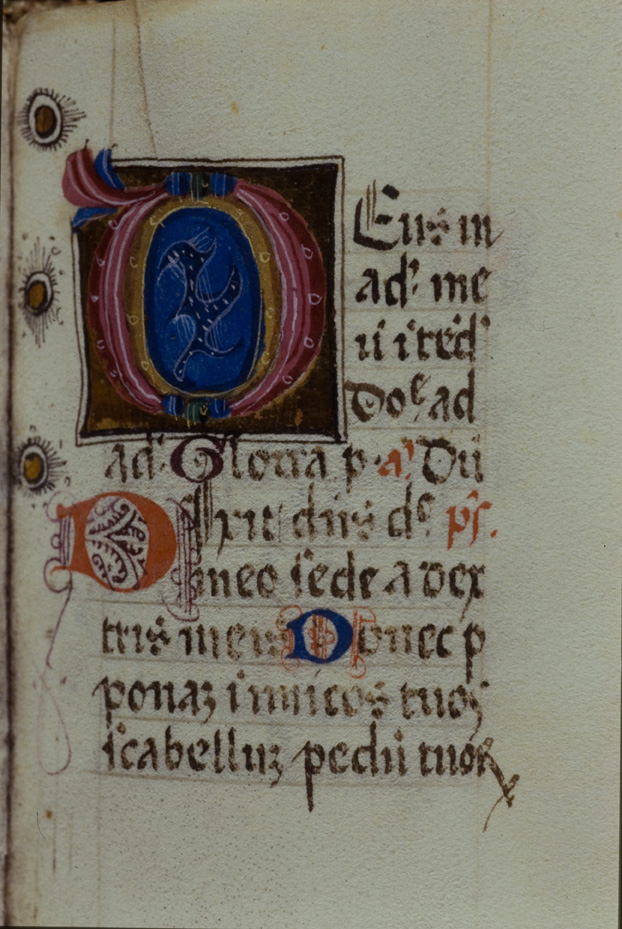 DEus in
ad. me
ū īteḋ
Doᵉ ad
ad. Gloria p. a. Dū
Dixit dn̄s dᵉ ps.
meo sede a dex
tris meis Donec p
ponaʒ inimicos tuos
scabelluʒ pedū tuoꝝ